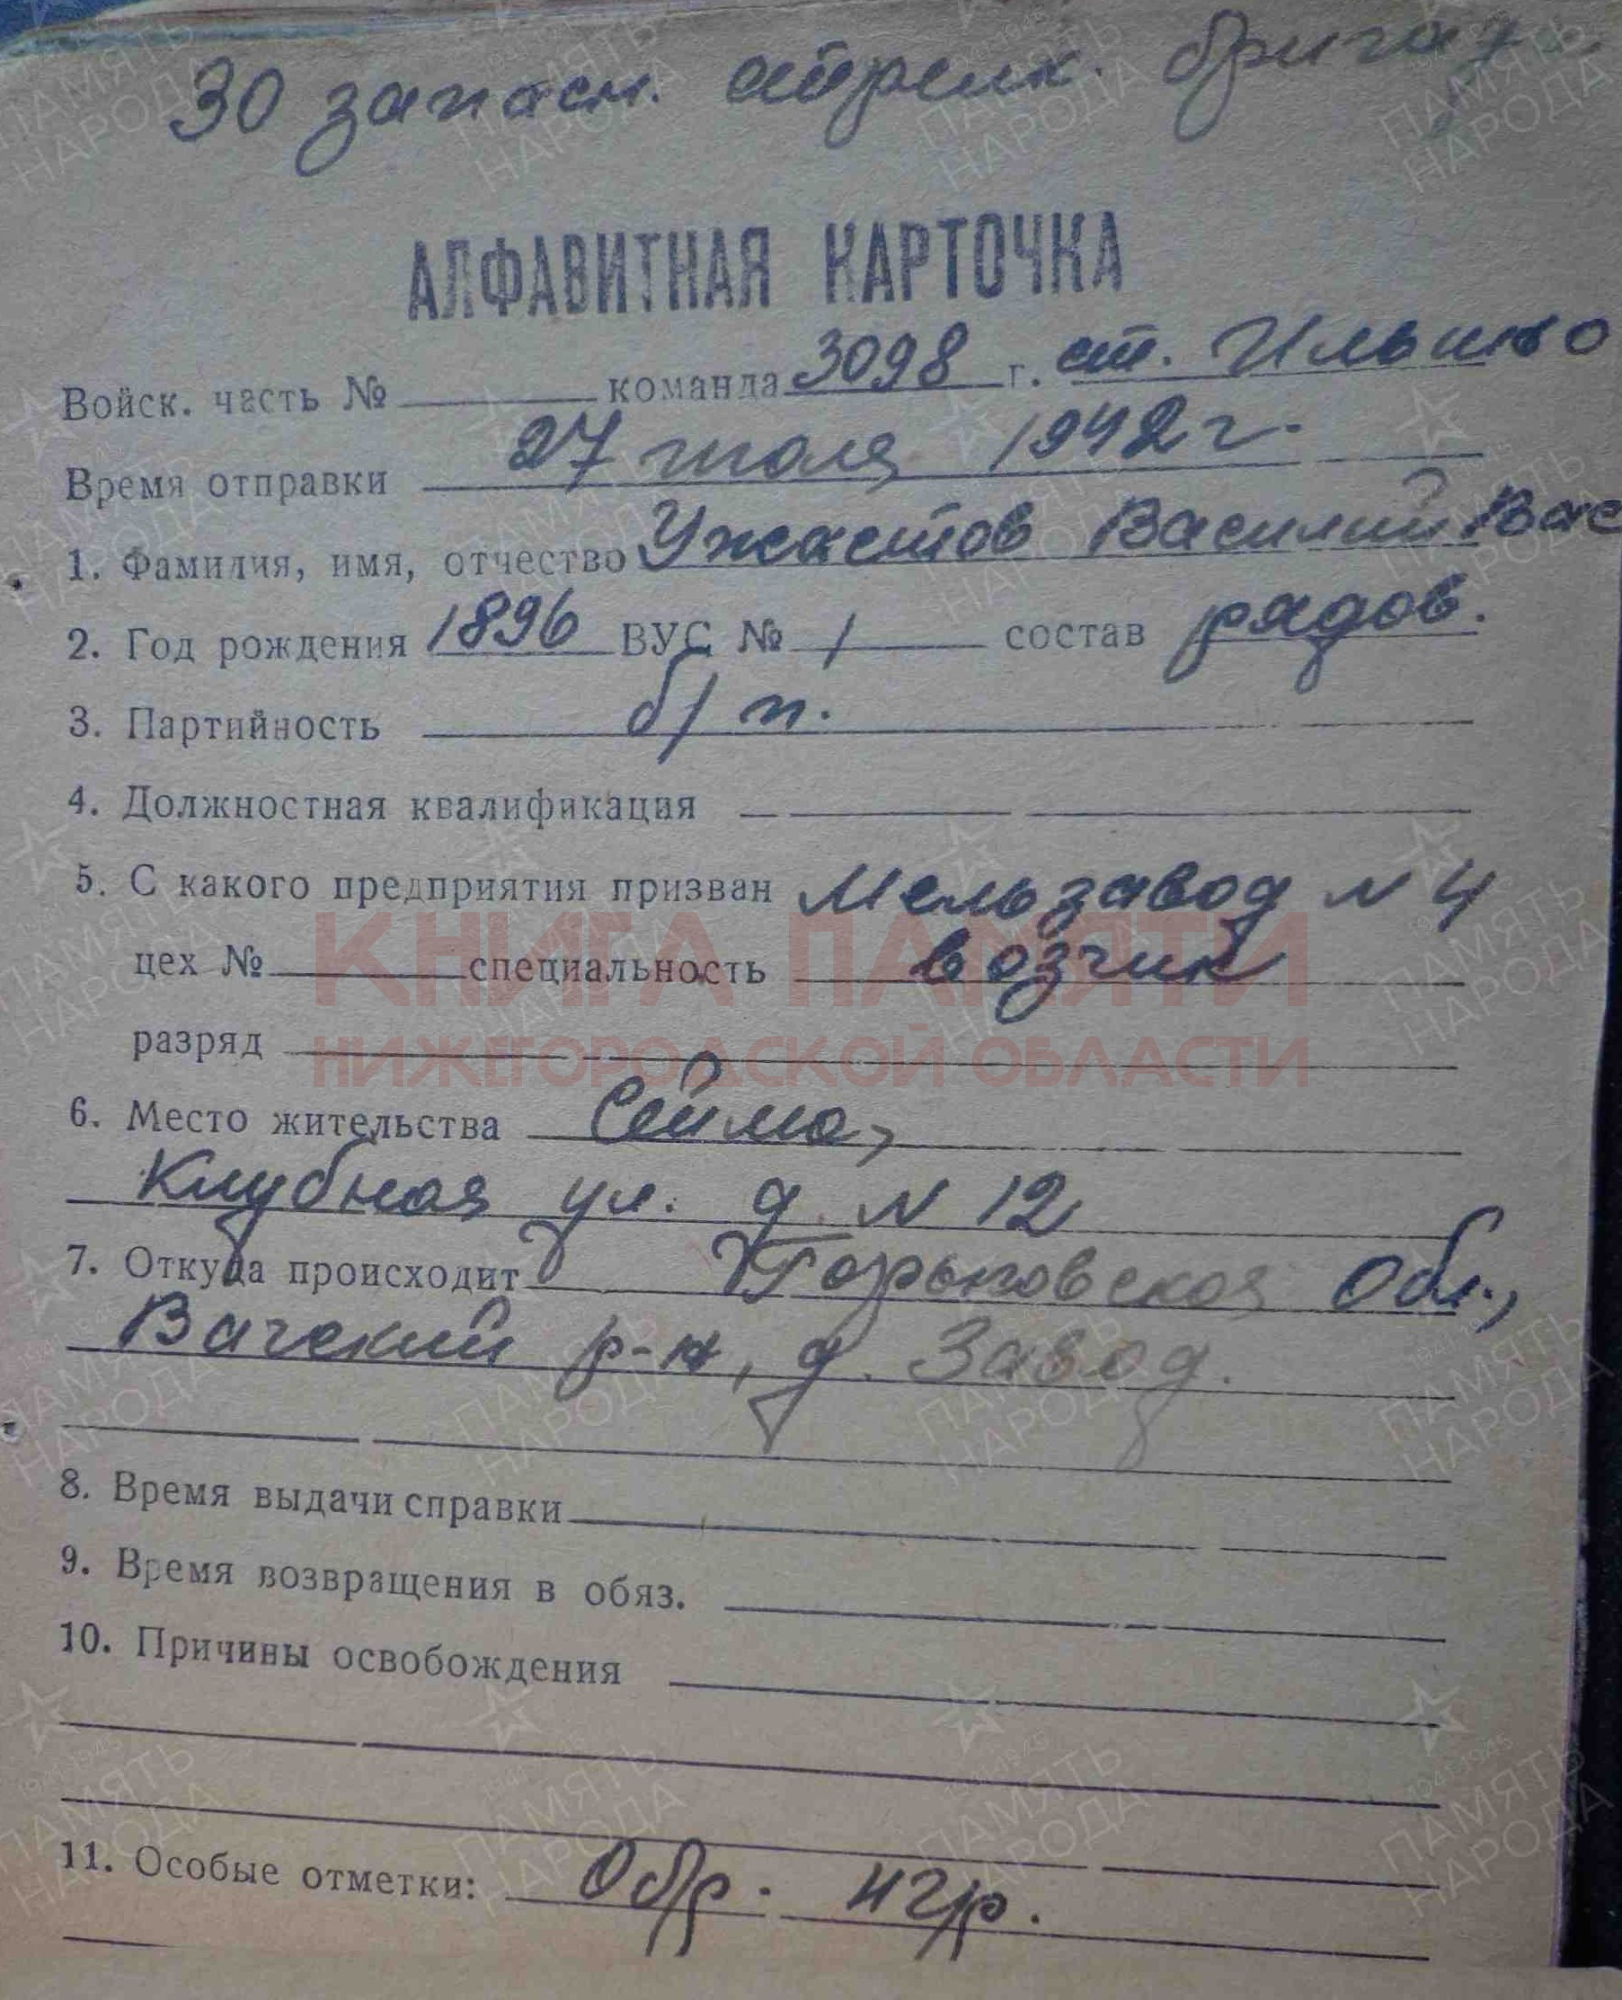 30 запасн. стрелк. бригада
АЛФАВИТНАЯ КАРТОЧКА
Войск. часть № команда 3098 г. ст. Ильино
Время отправки 27 июля 1942 г.
1. Фамилия, имя, отчество Ужастов Василий Вас
2. Год рождения 1896 ВУС № 1 состав рядов.
3. Партийность б/п.
4. Должностная квалификация
5. С какого предприятия призван Мельзавод № 4
цех № специальность возчик
КНИГА ПАМЯТИ
разряд
НИЖЕГОРОДСКОЙ ОБЛАСТИ
6. Место жительства Сейма,
Клубная ул. д. № 12
7. Откуда происходит Горьковская обл.,
Вачский р-н, д. Завод.
8. Время выдачи справки
9. Время возвращения в обяз.
10. Причины освобождения
11. Особые отметки: Обр. 4 гр.